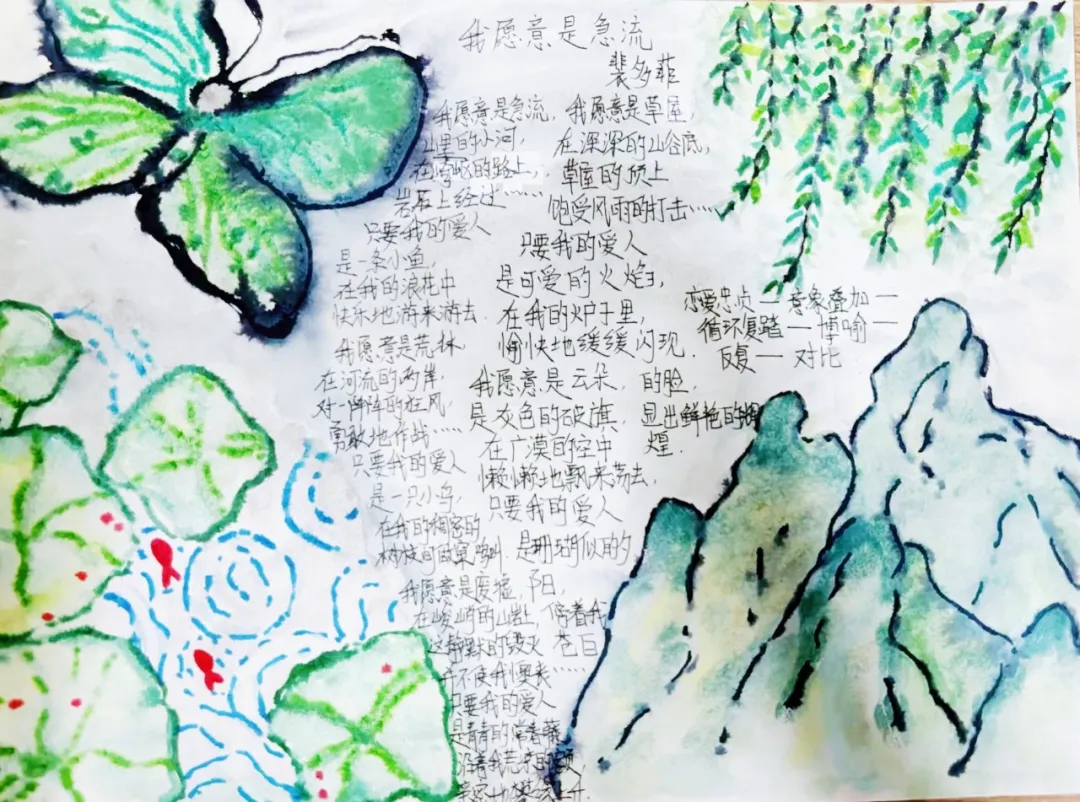 我愿意是急流
裴多菲
我愿意是急流,
山里的小河,
在崎岖的路上,
岩石上经过……
只要我的爱人
是一条小鱼,
在我的浪花中
快乐地游来游去.
我愿意是荒林
在河流的两岸,
对一阵阵的狂风,
勇敢地作战……
只要我的爱人
是一只小鸟,
在我的稠密的
树枝间做窠,鸣叫.
我愿意是废墟,
在峻峭的山岩上
这静默的毁灭
并不使我懊丧……
只要我的爱人
是青青的常春藤
沿着我荒凉的额,
亲密地攀援上升.
我愿意是草屋,
在深深的山谷底,
草屋的顶上
饱受风雨的打击……
只要我的爱人
是可爱的火焰,
在我的炉子里,
愉快地缓缓闪现.
我愿意是云朵,
是灰色的破旗,
在广漠的空中
懒懒地飘来荡去,
只要我的爱人
是珊瑚似的夕
阳,
傍着我
苍白
的脸,
显出鲜艳的辉
煌.
恋爱忠贞—意象叠加—
循环复踏—博喻—
反复—对比